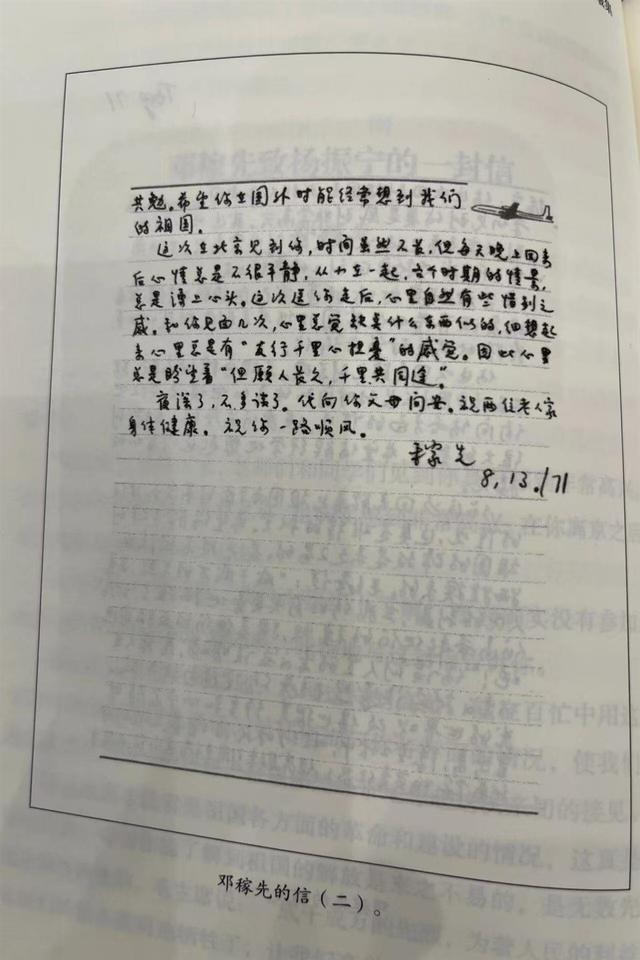 共勉。希望你在国外时能经常想到我们
的祖国。
这次在北京见到你，时间虽然不长，但每天晚上回来
后心情总是不很平静，从小在一起，各个时期的情景，
总是涌上心头。这次送你走后，心里自然有些惜别之
感。和你见面几次，心里总觉缺点什么东西似的，细想起
来心里总是有“友行千里心担忧”的感觉。因此心里
总是盼望着“但愿人长久，千里共同途”。
夜深了，不多谈了。代向你父母问安。祝两位老人家
身体健康。祝你一路顺风。
稼先
8.13./71
邓稼先的信（二）。